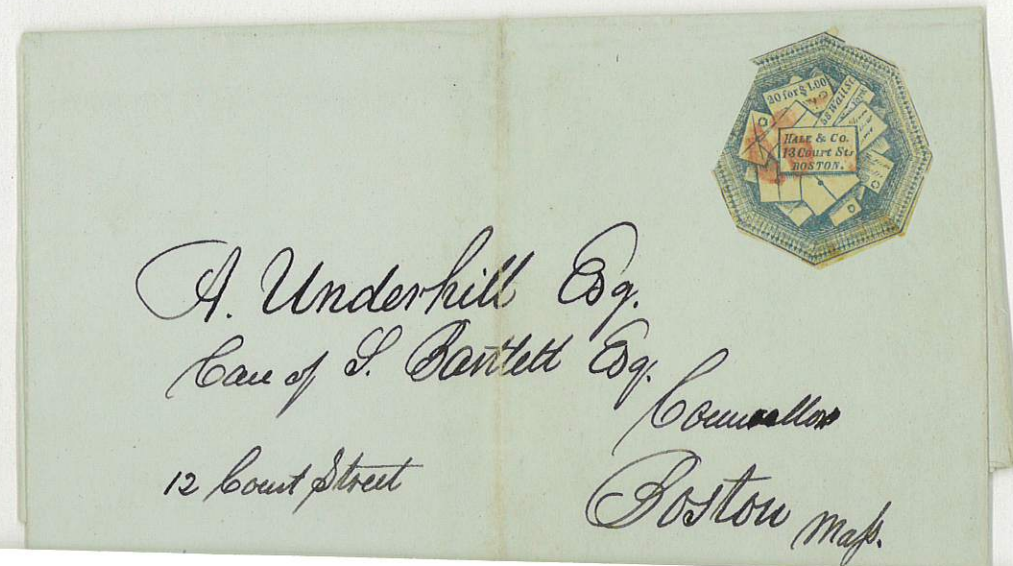 20 for $1.00
Wall St.
HALE & Co.
13 Court St.
BOSTON.
A. Underhill Esq.
Care of S. Bartlett Esq.
Counsellor
12 Court Street
Boston Mass.